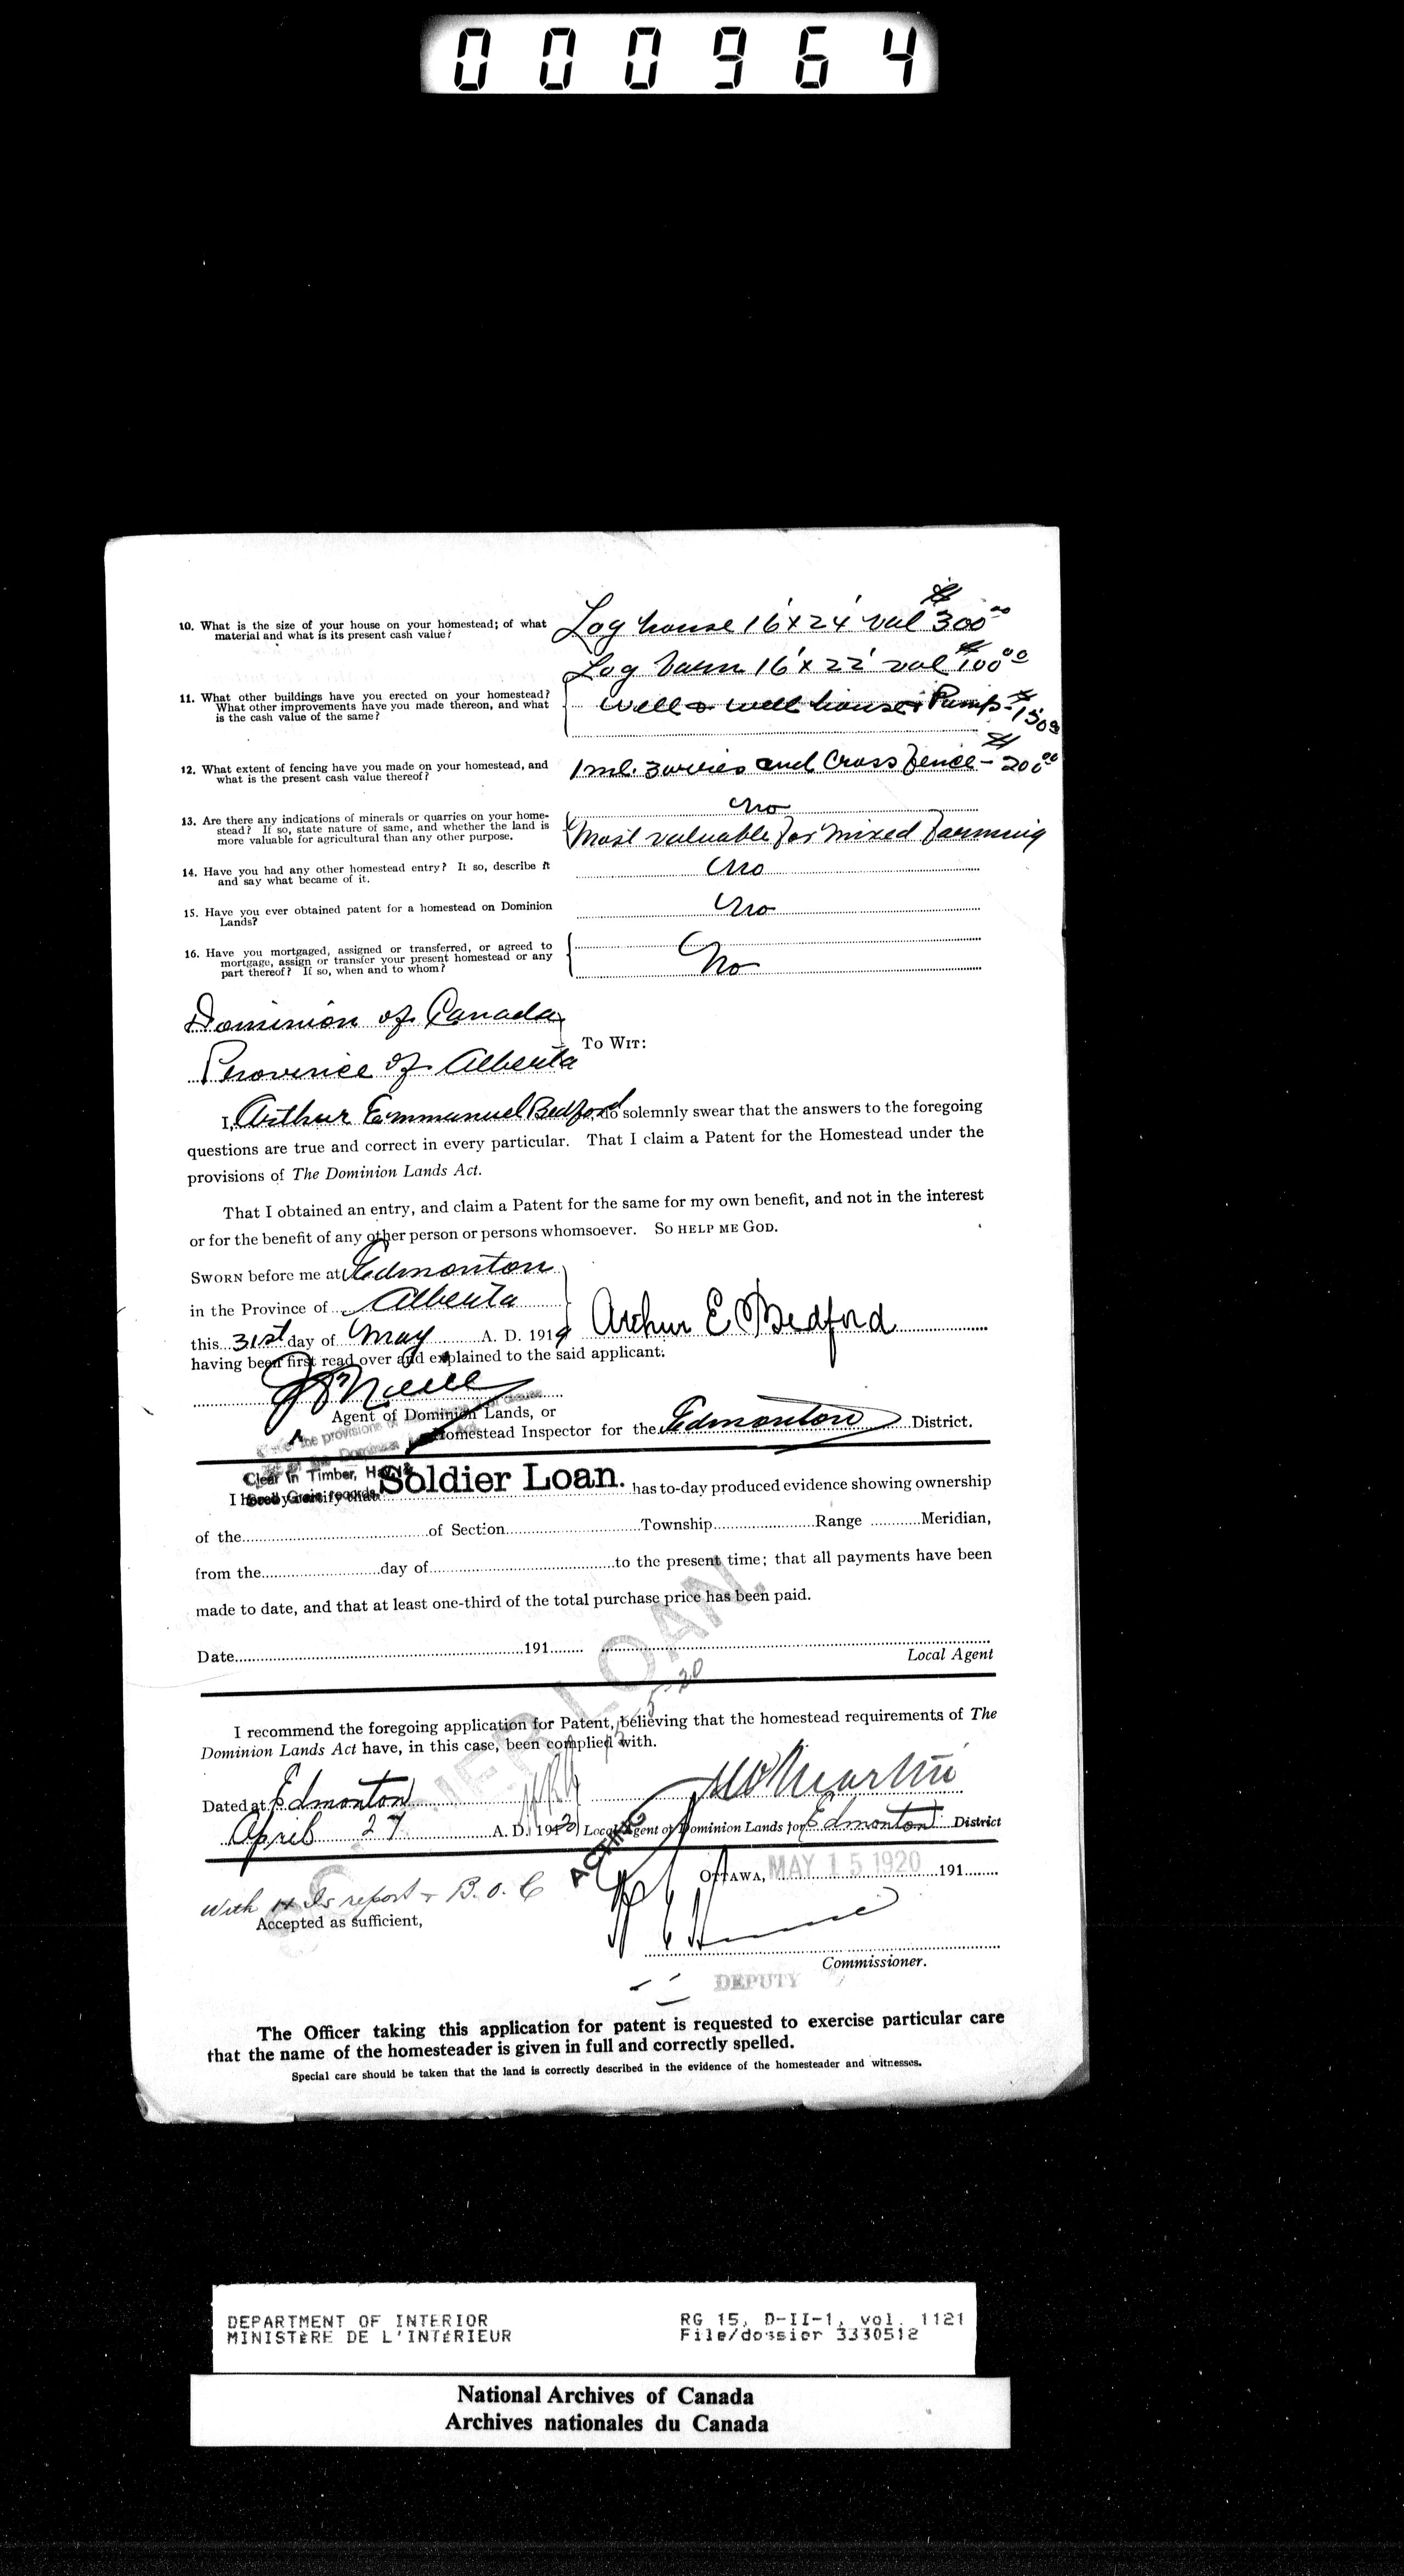 000964
10. What is the size of your house on your homestead; of what
material and what is its present cash value?
Log house 16'x24' val $300.00
Log barn 16'x22' val $100.00
11. What other buildings have you erected on your homestead?
What other improvements have you made thereon, and what
is the cash value of the same?
Well & well house & Pump - $150.00
12. What extent of fencing have you made on your homestead, and
what is the present cash value thereof?
1 ml. 3 wires and Cross fence - $200.00
13. Are there any indications of minerals or quarries on your home-
stead? If so, state nature of same, and whether the land is
more valuable for agricultural than any other purpose.
No
Most valuable for mixed farming
14. Have you had any other homestead entry? It so, describe it
and say what became of it.
No
15. Have you ever obtained patent for a homestead on Dominion
Lands?
No
16. Have you mortgaged, assigned or transferred, or agreed to
mortgage, assign or transfer your present homestead or any
part thereof? If so, when and to whom?
No
Dominion of Canada
To Wit:
Province of Alberta
I, Arthur Emmanuel Bedford, do solemnly swear that the answers to the foregoing
questions are true and correct in every particular. That I claim a Patent for the Homestead under the
provisions of The Dominion Lands Act.
That I obtained an entry, and claim a Patent for the same for my own benefit, and not in the interest
or for the benefit of any other person or persons whomsoever. So help me God.
Sworn before me at Edmonton
in the Province of Alberta
this 31st day of May A. D. 1919 Arthur E Bedford
having been first read over and explained to the said applicant.
Agent of Dominion Lands, or
the provisions of
Homestead Inspector for the Edmonton District.
Clear in Timber, Hay &
Seed Grain records
Soldier Loan.
I hereby certify that has to-day produced evidence showing ownership
of the of Section Township Range Meridian,
from the day of to the present time; that all payments have been
made to date, and that at least one-third of the total purchase price has been paid.
Date 191 
Local Agent
SOLDIER LOAN.
I recommend the foregoing application for Patent, believing that the homestead requirements of The
Dominion Lands Act have, in this case, been complied with.
Dated at Edmonton
April 27 A. D. 1920 Local Agent of Dominion Lands for Edmonton District
ACTING
Ottawa, MAY 15 1920 191
With H Is report & B. o. C
Accepted as sufficient,
Commissioner.
DEPUTY
The Officer taking this application for patent is requested to exercise particular care
that the name of the homesteader is given in full and correctly spelled.
Special care should be taken that the land is correctly described in the evidence of the homesteader and witnesses.
DEPARTMENT OF INTERIOR
MINISTÈRE DE L'INTÉRIEUR
RG 15, D-II-1, vol. 1121
File/dossier 3330512
National Archives of Canada
Archives nationales du Canada